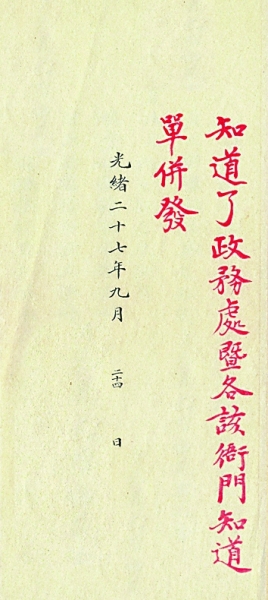 知道了政務處暨各該衙門知道
單併發
光緒二十七年九月二十四日